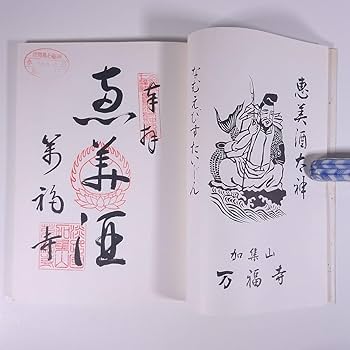 恵美酒太神
なむえびすだいじん
加集山
万福寺
奉拝
恵美酒
萬福寺